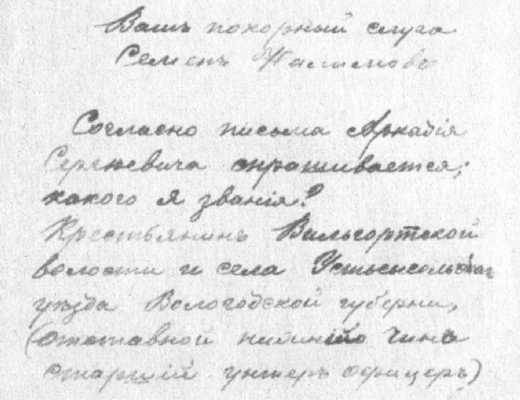 Вашъ покорный слуга
Семенъ Налимовъ
Согласно письма Аркадія
Сергѣевича спрашивается;
какого я званія?
Крестьянинъ Вильгортской
волости и села Устьсысольскаго
уѣзда Вологодской губерни,
(отставной нижнійго чина
старшій унтеръ офицеръ)